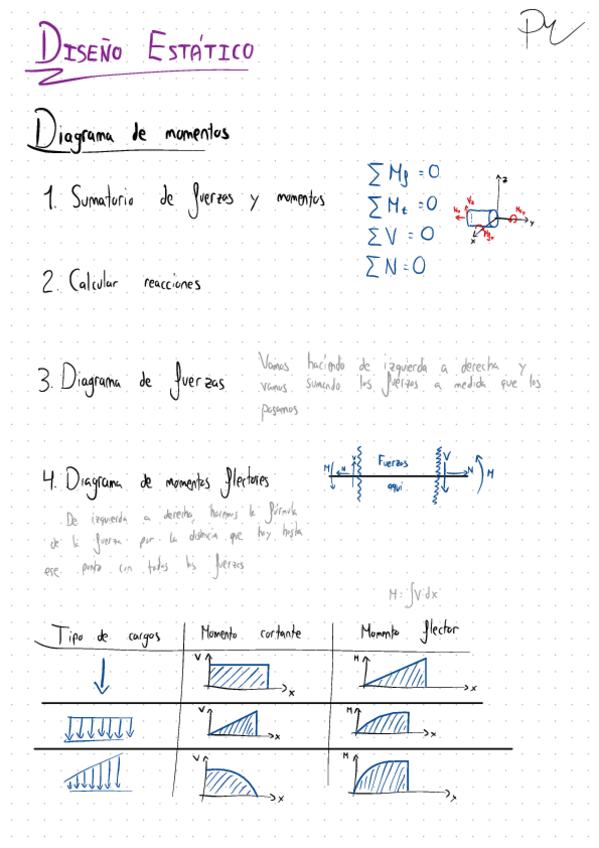 DISEÑO ESTÁTICO
Diagrama de momentos
1. Sumatorio de fuerzas y momentos
∑ Mf = 0
∑ Mt = 0
∑ V = 0
∑ N = 0
z
y
x
2. Calcular reacciones
3. Diagrama de fuerzas
Vamos haciendo de izquierda a derecha y
vamos sumando las fuerzas a medida que los
pasamos
4. Diagrama de momentos flectores
M N V Fuerzas V N M
aquí
De izquierda a derecha, hacemos la fórmula
de la fuerza por la distancia que hay hasta
ese punto con todas las fuerzas
M = ∫V·dx
Tipo de cargas Momento cortante Momento flector
V x M x
V x M x
V x M x